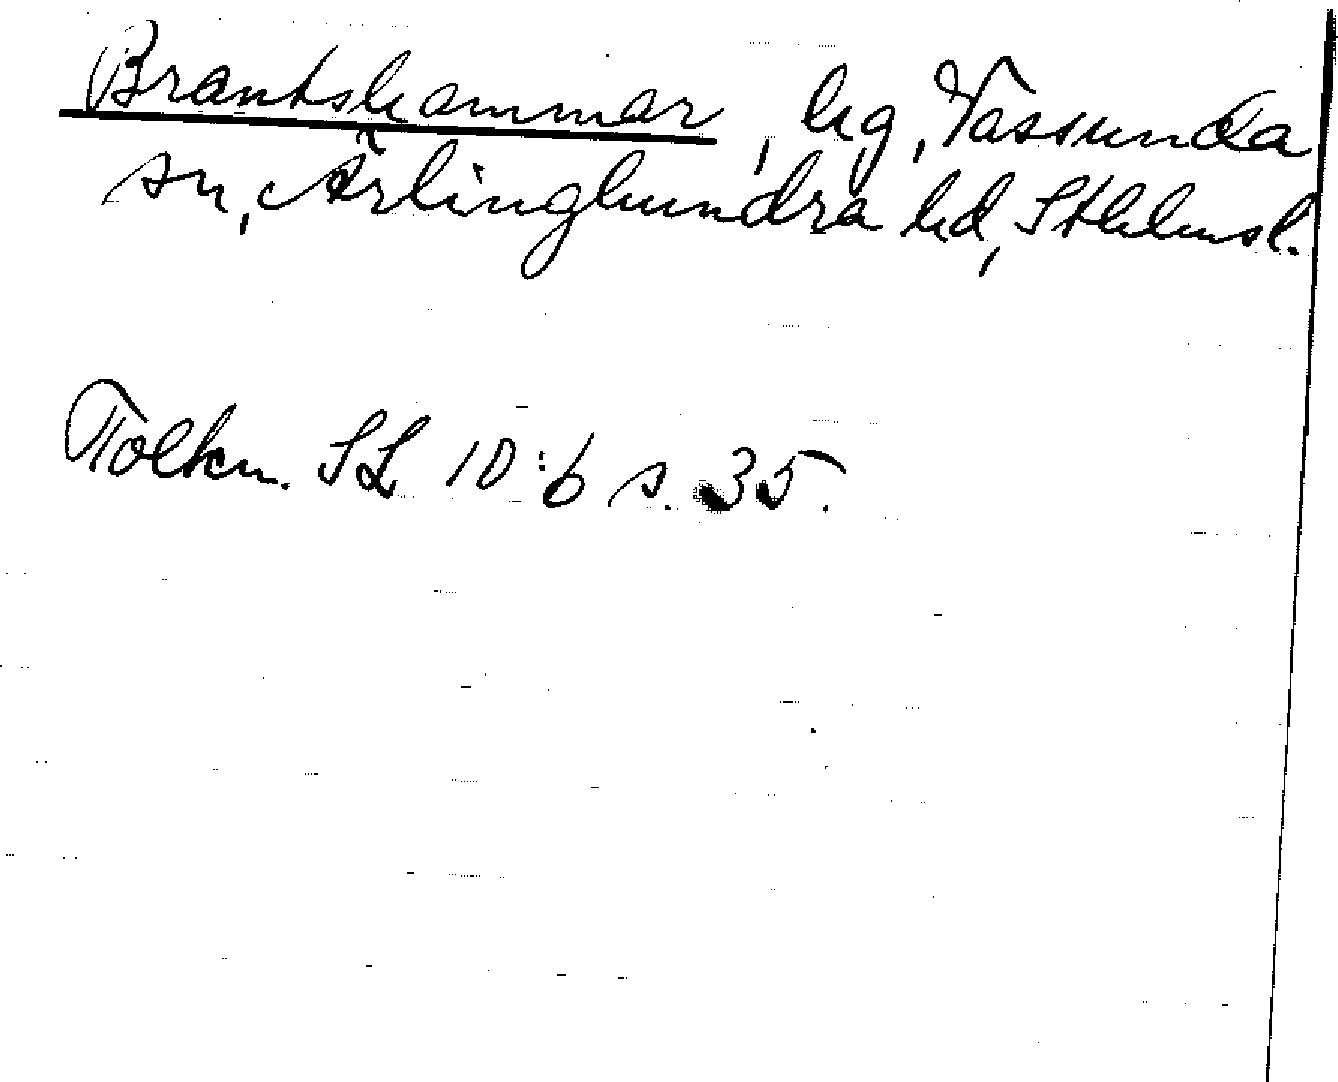 Brantshammar, hg, Vassunda
sn, Ärlinghundra hd, Sthlmsl.
Tolkn. SL 10:6 s. 35.